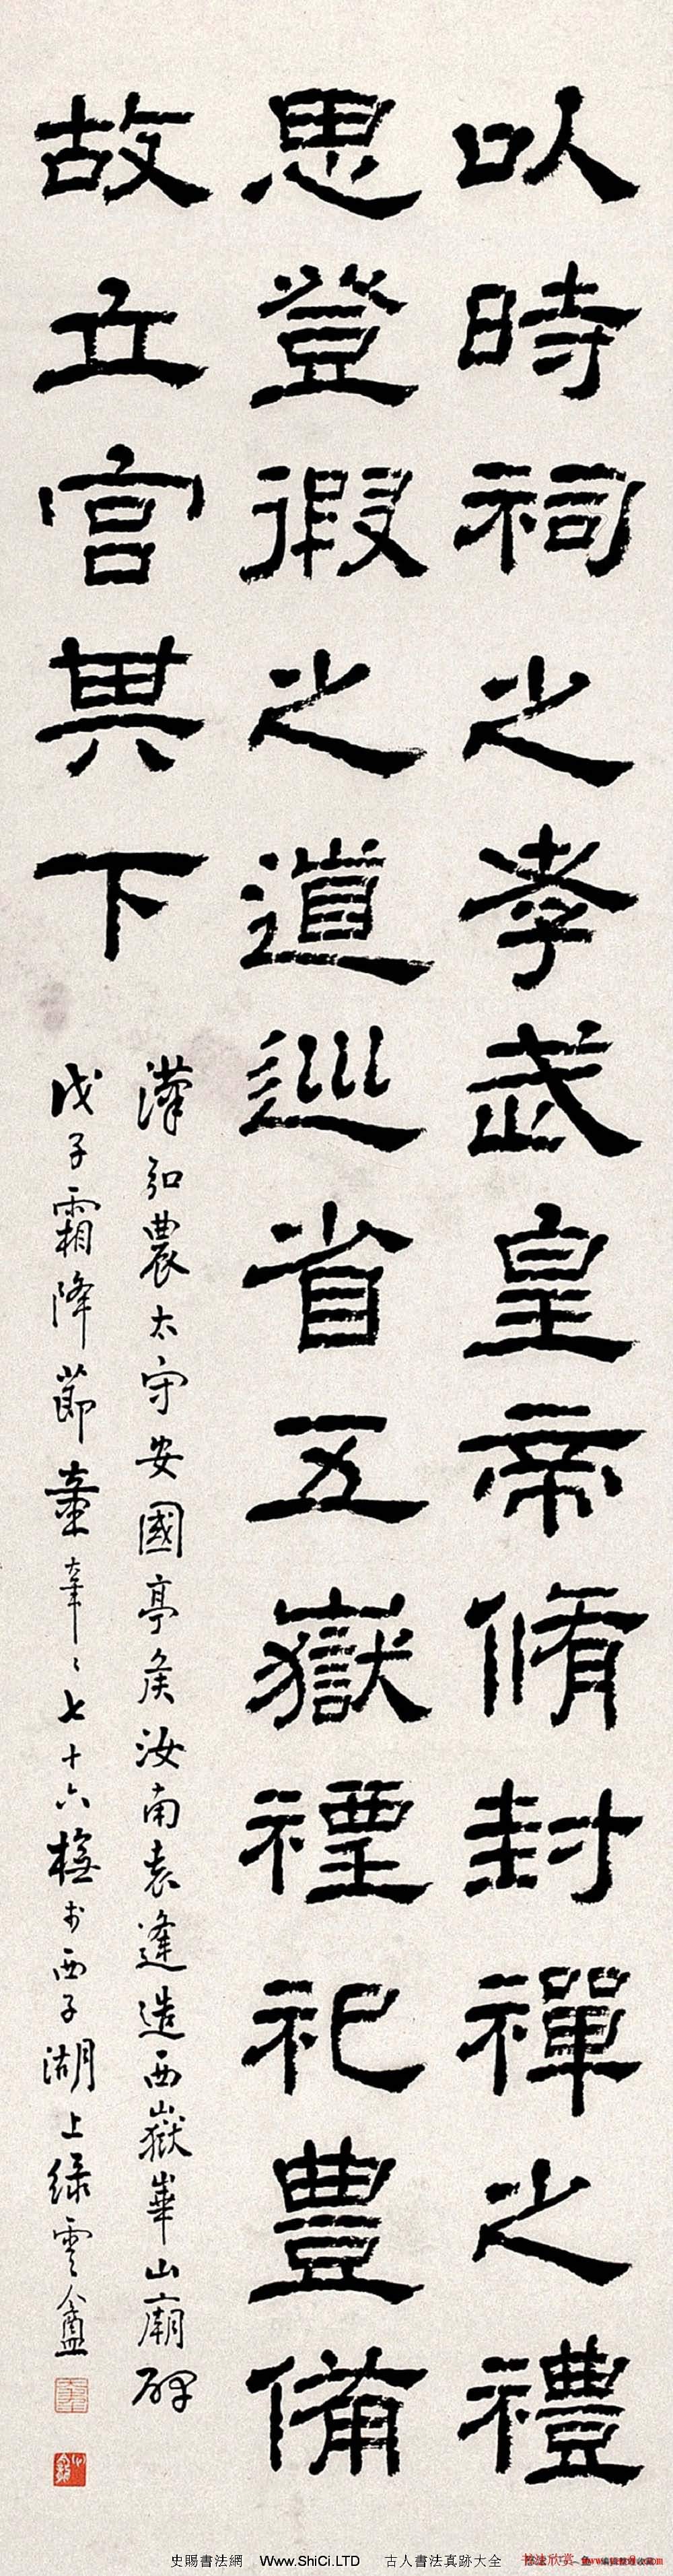 以時祠之孝武皇帝脩封禪之禮
思登徦之道巡省五嶽禋祀豊備
故立宮其下
漢弘農太守安國亭矦汝南袁逢造西嶽華山廟碑
戊子霜降節童辛〻七十六橅於西子湖上緑雲盦
史賜書法網 Www.ShiCi.LTD 古人書法真跡大全
书法欣赏